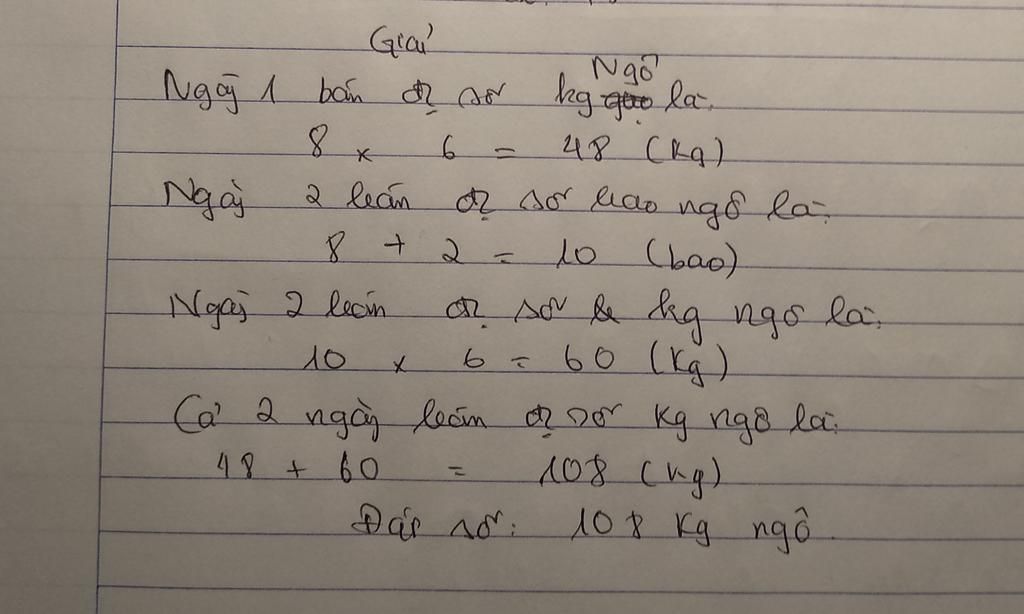 Giải
Ngày 1 bán đc số kg Ngô là:
8 x 6 = 48 (kg)
Ngày 2 bán đc số bao ngô là:
8 + 2 = 10 (bao)
Ngày 2 bán đc số kg ngô là:
10 x 6 = 60 (kg)
Cả 2 ngày bán đc số kg ngô là:
48 + 60 = 108 (kg)
Đáp số: 108 kg ngô.